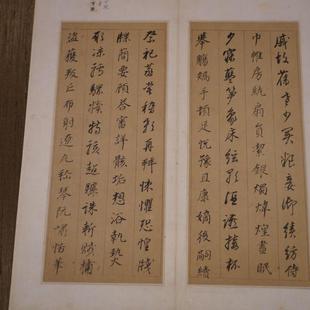 戚故舊老少異粮妾御績紡侍
巾帷房紈扇員絜銀燭煒煌晝眠
夕寐藍笋象床絃歌酒讌接杯
舉觴矯手頓足悅豫且康嫡後嗣續
祭祀蒸嘗稽顙再拜悚懼恐惶牋
牒簡要顧答審詳骸垢想浴執熱
願涼驢騾犢特駭超誅斬賊捕
盜獲叛亡布射遼丸嵇琴阮嘯恬筆